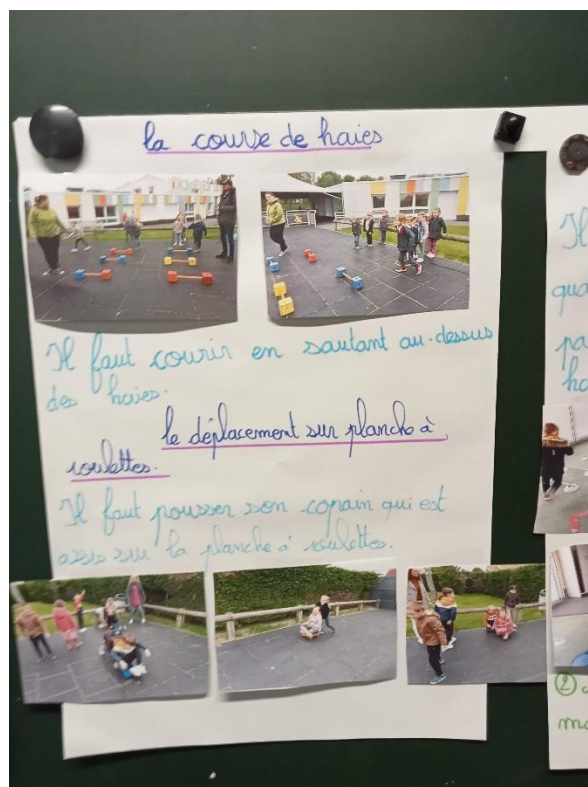 la course de haies
Il faut courir en sautant au-dessus
des haies.
le déplacement sur planche à
roulettes.
Il faut pousser son copain qui est
assis sur la planche à roulettes.
Il
qua
pa
ha
②
ma